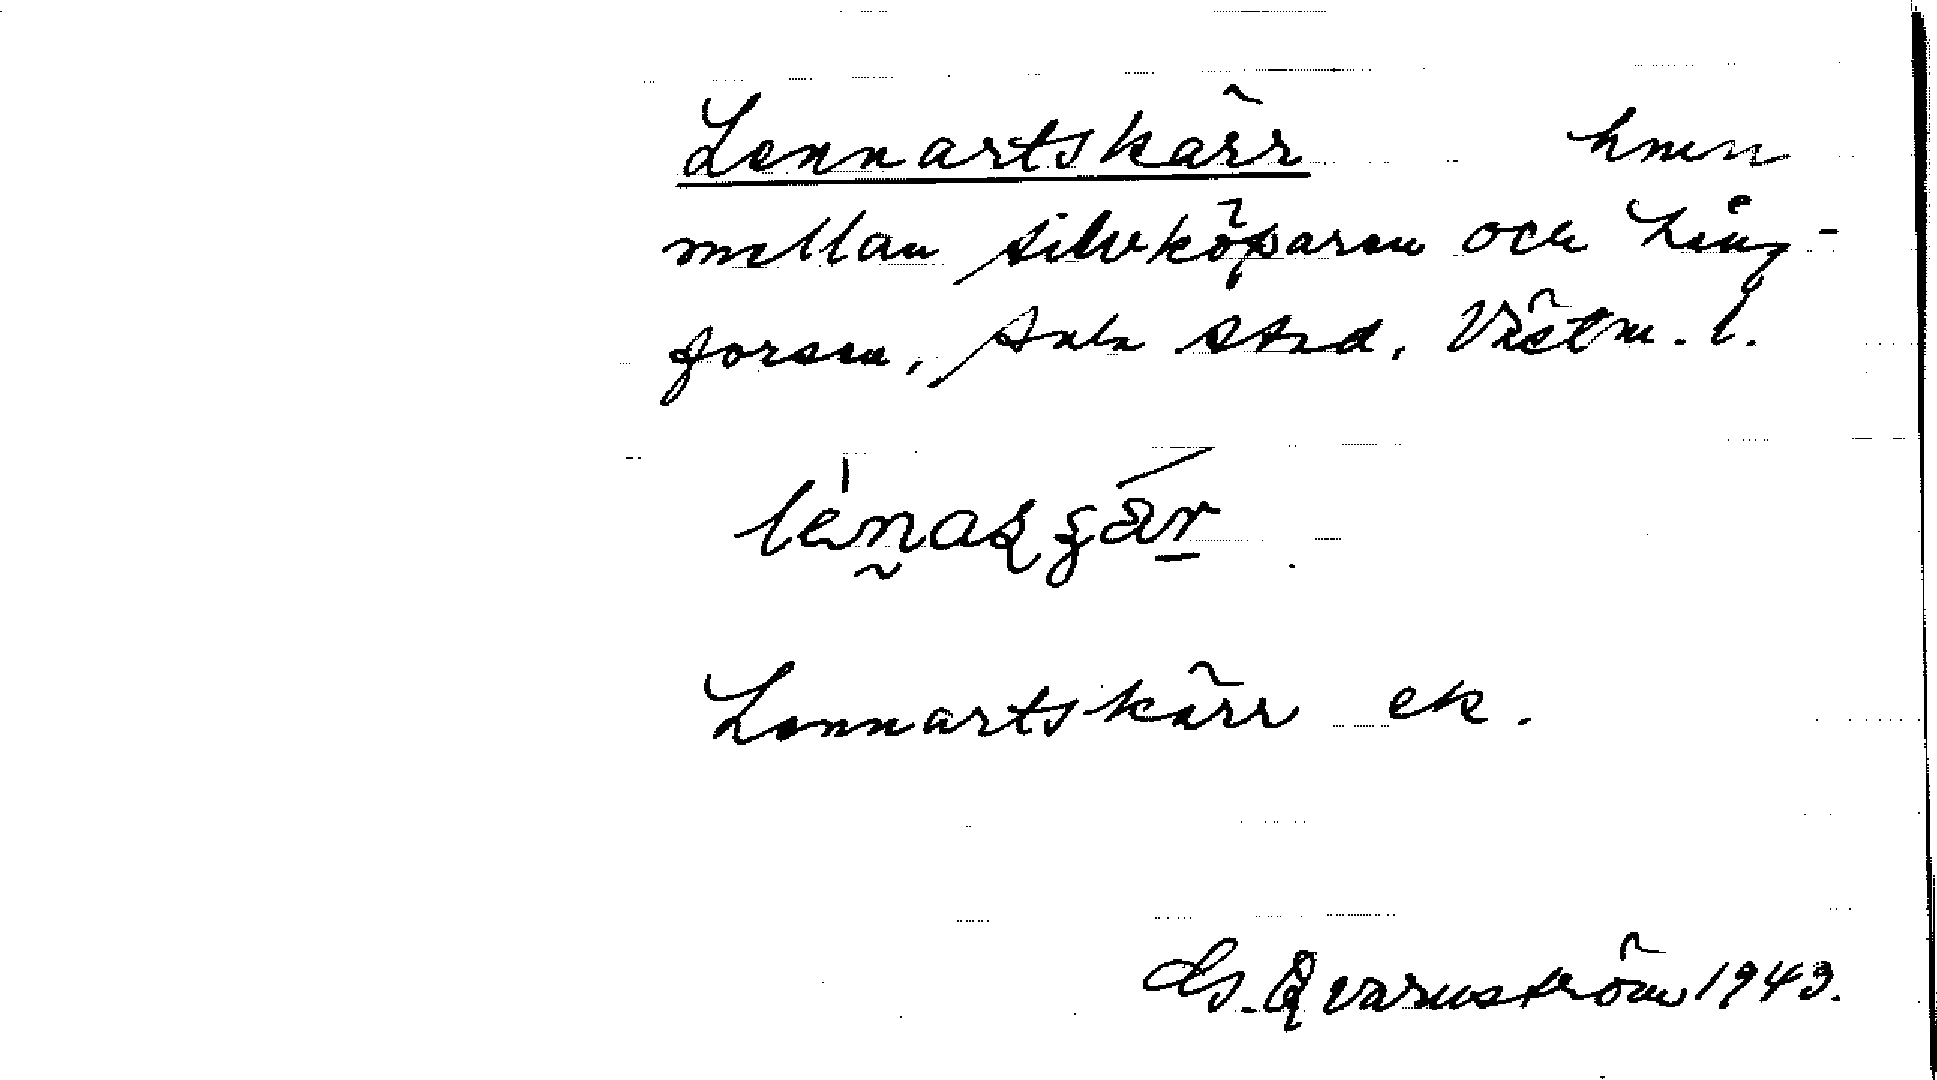 Lennartskärr hmn
mellan Silvköparen och Lång-
forsen, Sala stad, Västm. l.
Lennartskärr ek.
G. Qvarnström 1943.